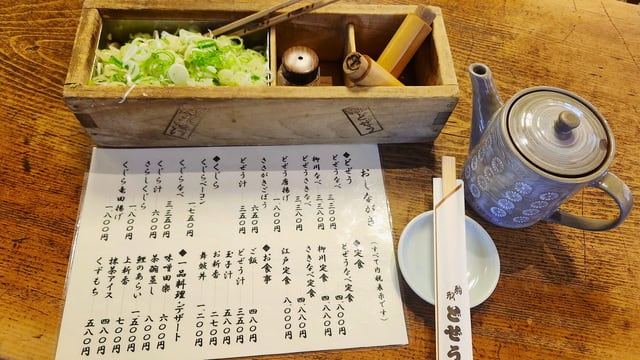 おしながき
(すべて内税表示です)
◆どぜう
どぜうなべ 三三〇〇円
柳川なべ 三二八〇円
どぜうさきなべ 三三八〇円
どぜう唐揚げ 一八〇〇円
ささがきごぼう 六五〇円
どぜう汁 三五〇円
◆くじら
くじらベーコン 一七五〇円
くじらなべ 三三五〇円
くじら汁 六〇〇円
さらしくじら
くじら竜田揚げ 一八〇〇円
◆定食
どぜうなべ定食 四八〇〇円
柳川定食 四八八〇円
さきなべ定食 四八八〇円
江戸定食 八〇〇〇円
◆お食事
ご飯 四八〇円
どぜう汁 三五〇円
玉子汁 五五〇円
お新香 二七〇円
舞鼓丼 一二〇〇円
◆一品料理・デザート
味噌田楽 六〇〇円
茶碗蒸し
鯉のあらい 一五〇〇円
上新香 七〇〇円
抹茶アイス 四八〇円
くずもち 五八〇円
駒形
どぜう